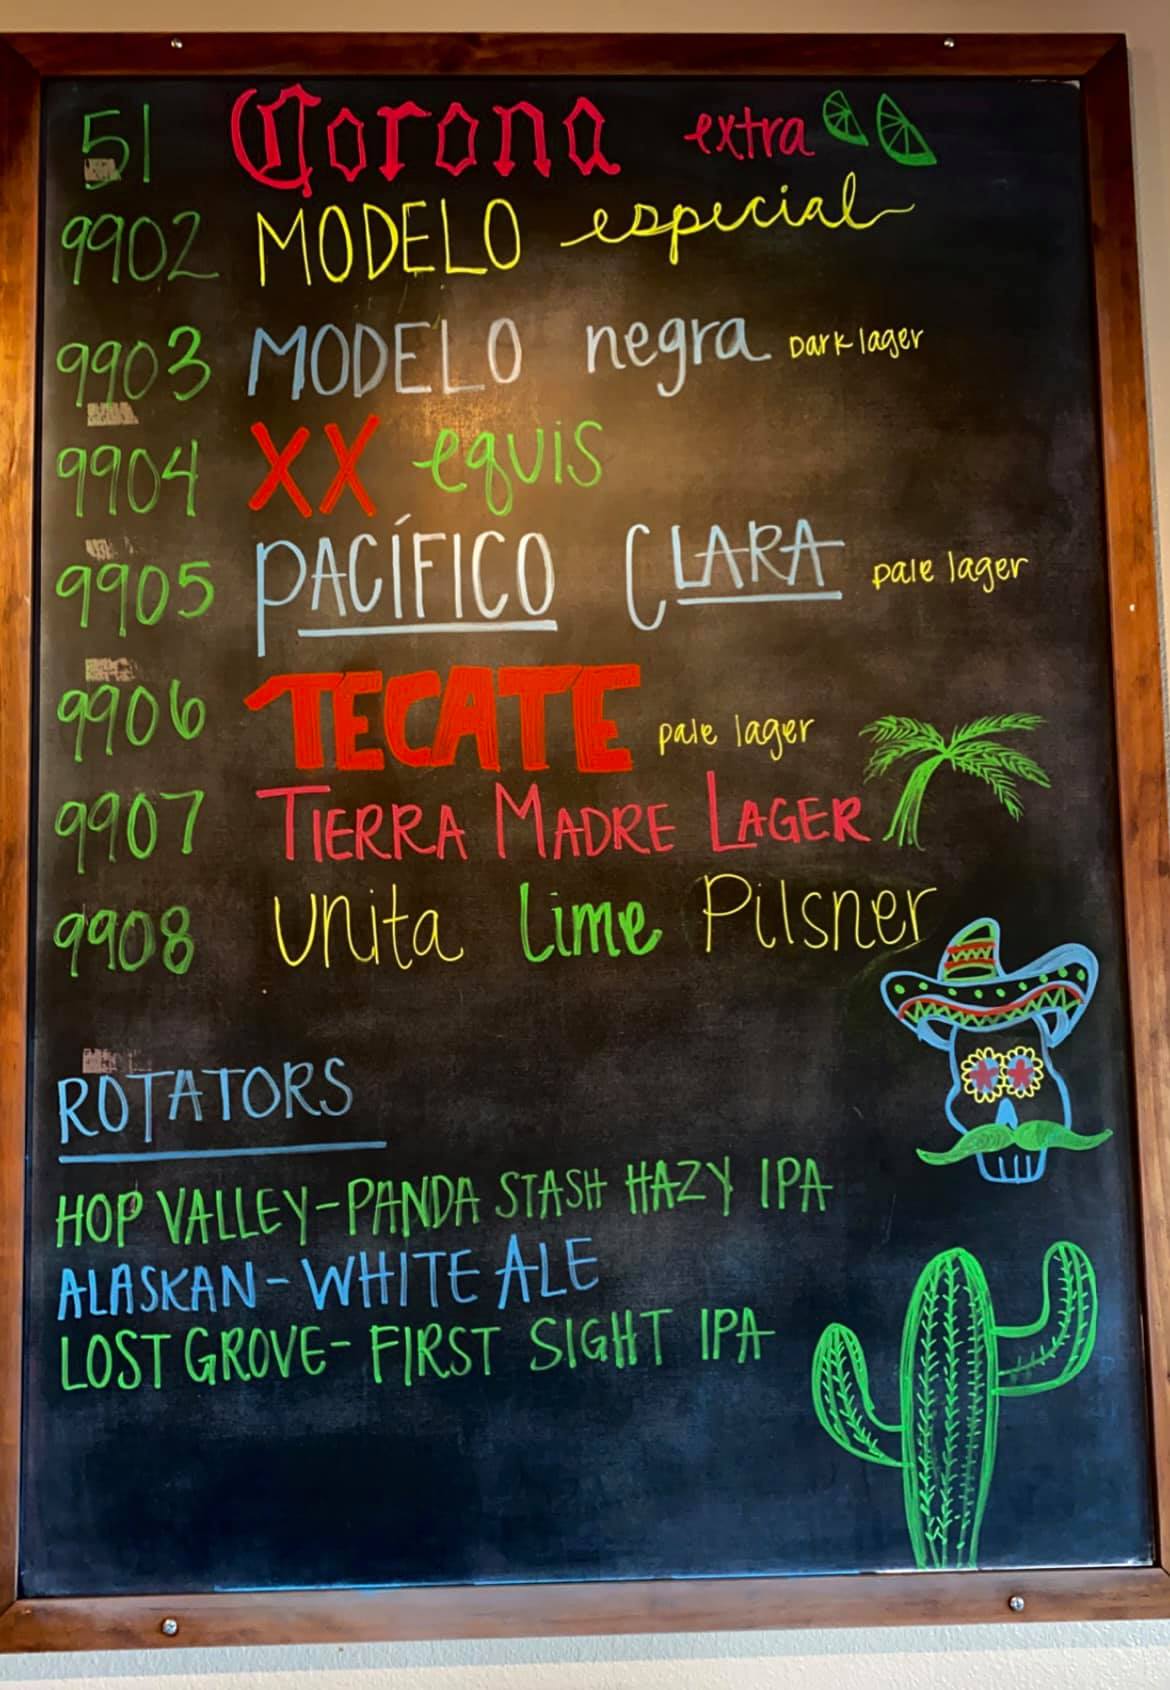 51 Corona extra
9902 MODELO especial
9903 MODELO negra Dark lager
9904 XX equis
9905 PACÍFICO CLARA pale lager
9906 TECATE pale lager
9907 TIERRA MADRE LAGER
9908 Unita Lime Pilsner
ROTATORS
HOP VALLEY-PANDA STASH HAZY IPA
ALASKAN-WHITE ALE
LOST GROVE-FIRST SIGHT IPA